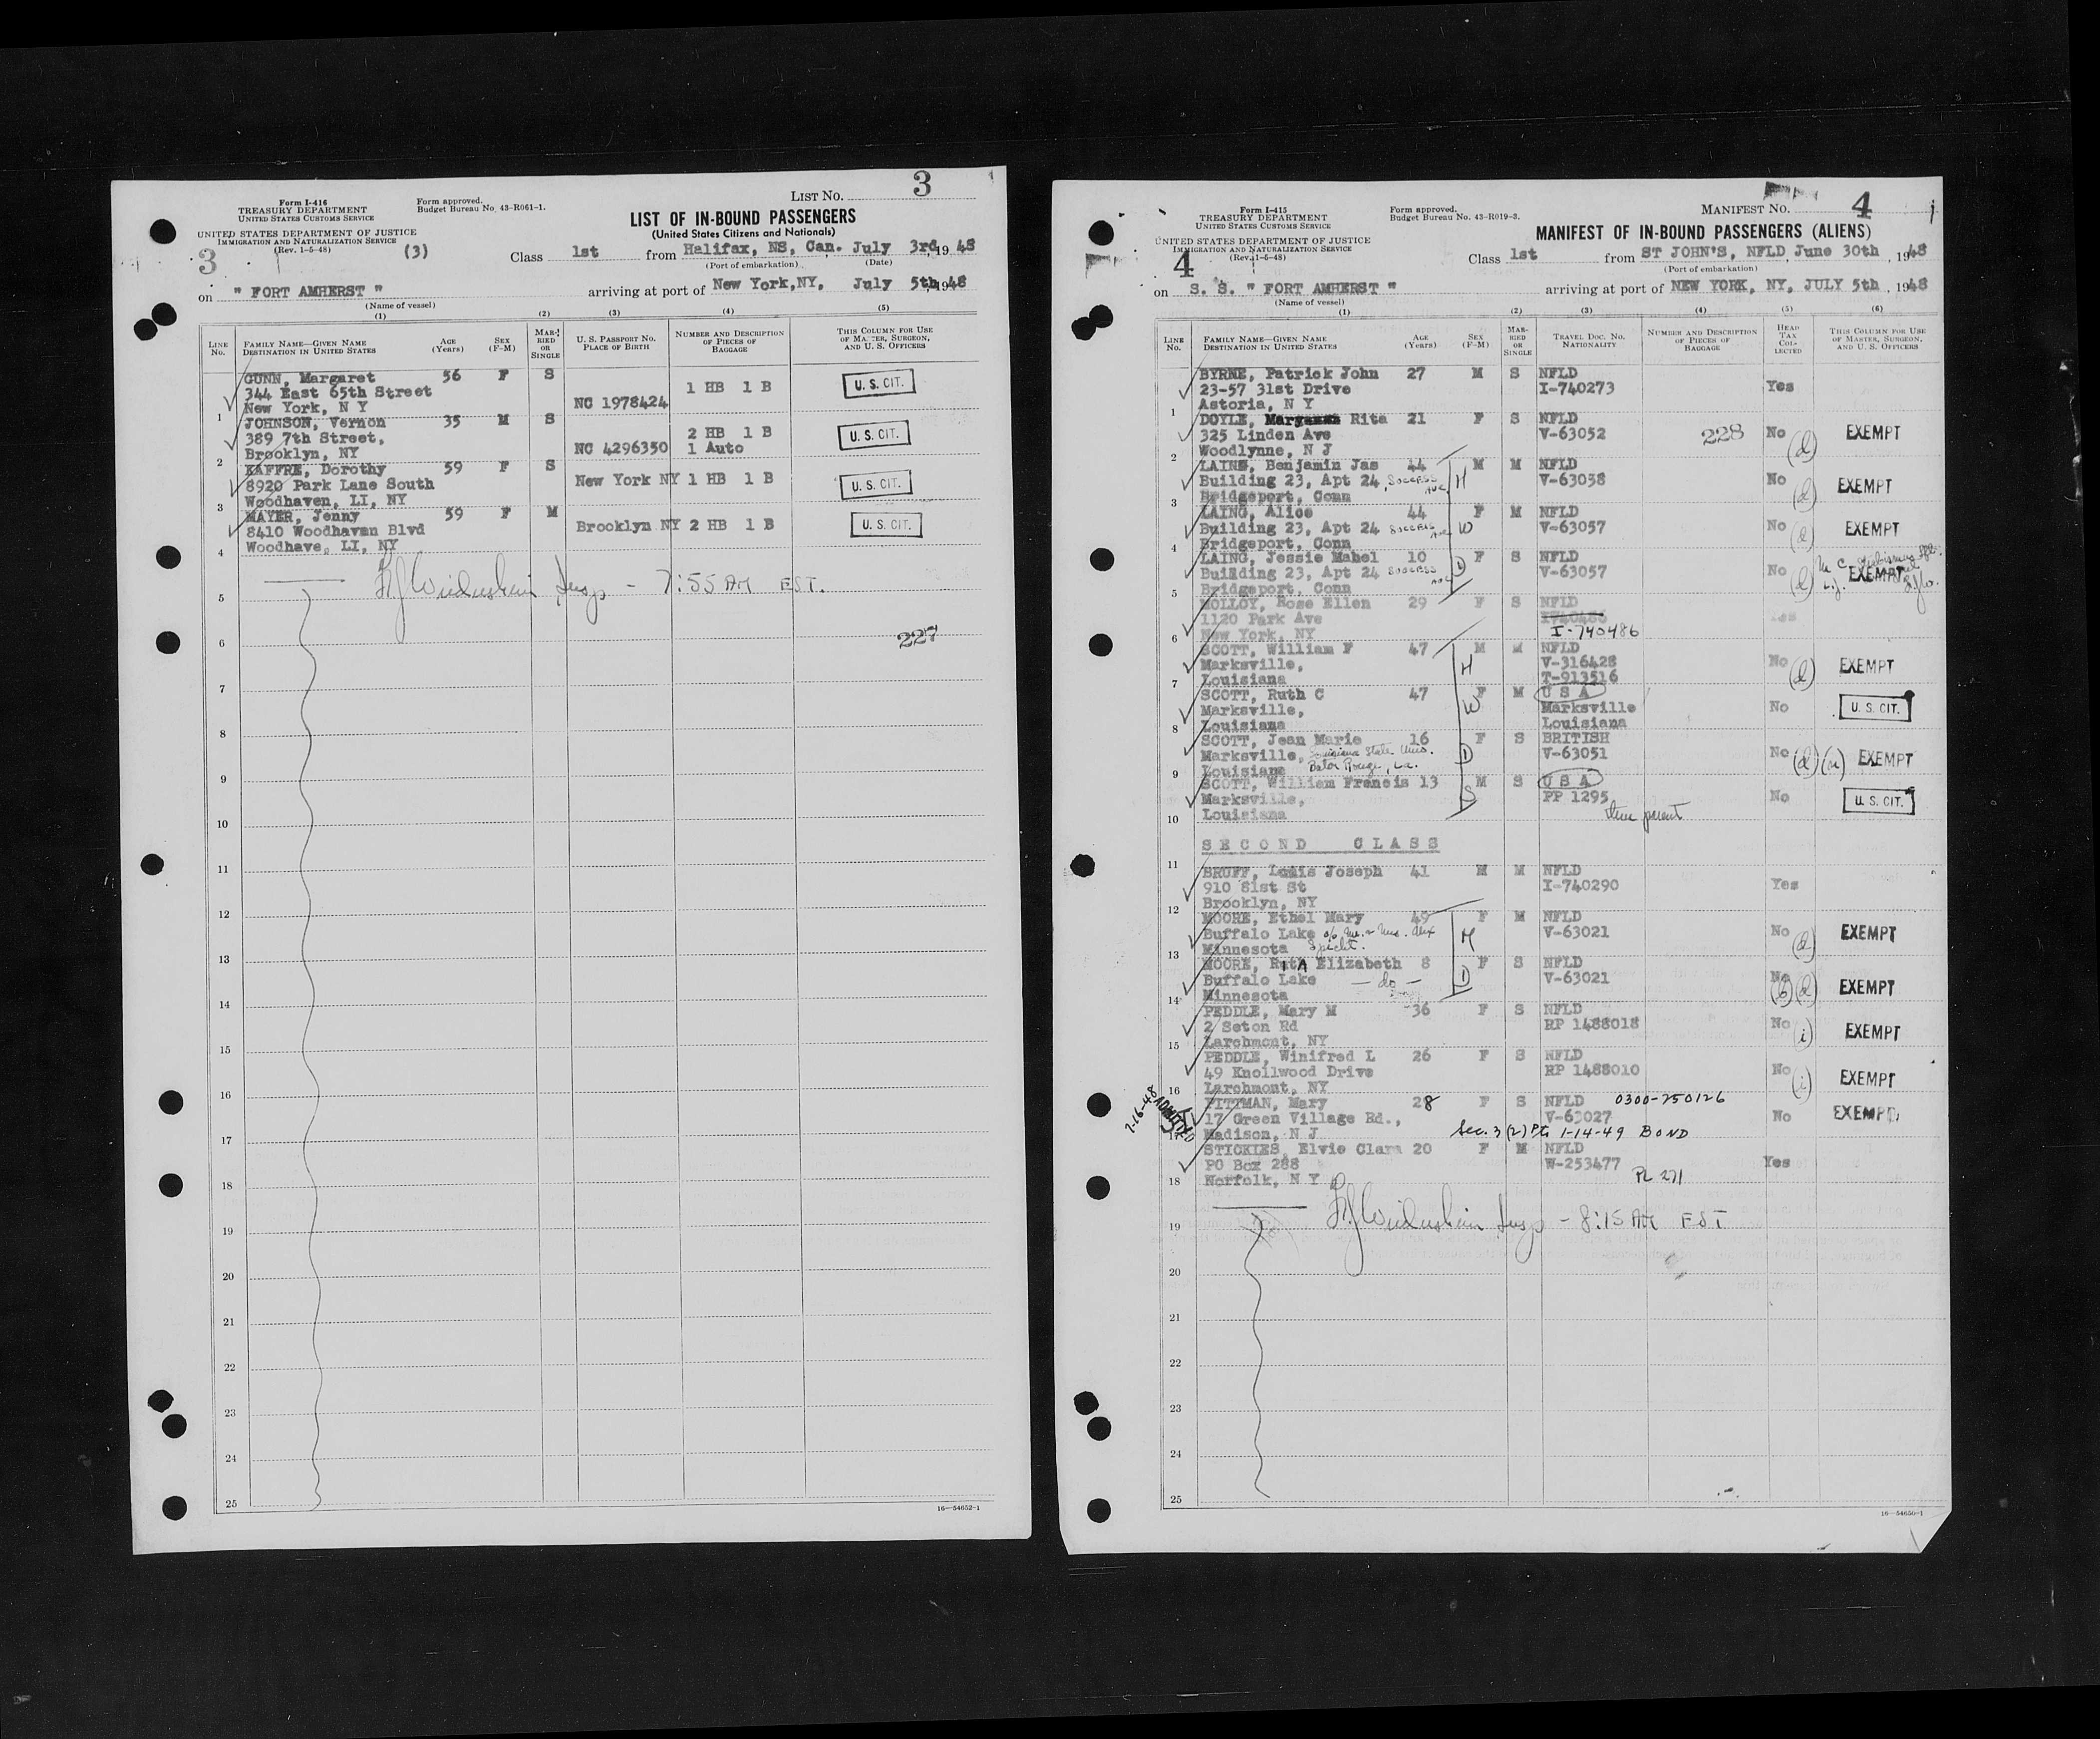 LIST No. 3
Form I-416
TREASURY DEPARTMENT
UNITED STATES CUSTOMS SERVICE
Form approved.
Budget Bureau No. 43-R061-1.
UNITED STATES DEPARTMENT OF JUSTICE
IMMIGRATION AND NATURALIZATION SERVICE
(Rev. 1-5-48)
(3)
3
LIST OF IN-BOUND PASSENGERS
(United States Citizens and Nationals)
Class 1st from Halifax, NS, Can. July 3rd, 1948
(Port of embarkation) (Date)
on " FORT AMHERST " arriving at port of New York, NY, July 5th, 1948
(Name of vessel)
(1) (2) (3) (4) (5)
LINE No. FAMILY NAME—GIVEN NAME DESTINATION IN UNITED STATES AGE (Years) SEX (F-M) MARRIED OR SINGLE U. S. PASSPORT No. PLACE OF BIRTH NUMBER AND DESCRIPTION OF PIECES OF BAGGAGE THIS COLUMN FOR USE OF MASTER, SURGEON, AND U. S. OFFICERS
GUNN, Margaret 56 F S
344 East 65th Street 1 HB 1 B U. S. CIT.
1 New York, N Y NC 1978424
JOHNSON, Vernon 35 M S
389 7th Street, 2 HB 1 B U. S. CIT.
2 Brooklyn, NY NC 4296350 1 Auto
KAFFRE, Dorothy 59 F S
8920 Park Lane South New York NY 1 HB 1 B U. S. CIT.
3 Woodhaven, LI, NY
MAYER, Jenny 59 F M
8410 Woodhaven Blvd Brooklyn NY 2 HB 1 B U. S. CIT.
4 Woodhave, LI, NY
Insp - 7:55 AM EST.
5
6 227
7
8
9
10
11
12
13
14
15
16
17
18
19
20
21
22
23
24
25
16—54652-1
MANIFEST No. 4
Form I-415
TREASURY DEPARTMENT
UNITED STATES CUSTOMS SERVICE
Form approved.
Budget Bureau No. 43-R019-3.
UNITED STATES DEPARTMENT OF JUSTICE
IMMIGRATION AND NATURALIZATION SERVICE
(Rev. 1-6-48)
4
MANIFEST OF IN-BOUND PASSENGERS (ALIENS)
Class 1st from ST JOHN'S, NFLD, June 30th, 1948
(Port of embarkation)
on S. S. " FORT AMHERST " arriving at port of NEW YORK, NY, JULY 5th, 1948
(Name of vessel)
(1) (2) (3) (4) (5) (6)
LINE No. FAMILY NAME—GIVEN NAME DESTINATION IN UNITED STATES AGE (Years) SEX (F-M) MARRIED OR SINGLE TRAVEL DOC. NO. NATIONALITY NUMBER AND DESCRIPTION OF PIECES OF BAGGAGE HEAD TAX COLLECTED THIS COLUMN FOR USE OF MASTER, SURGEON, AND U. S. OFFICERS
BYRNE, Patrick John 27 M S NFLD
23-57 31st Drive I-740273 Yes
1 Astoria, N Y
DOYLE, Rita 21 F S NFLD
325 Linden Ave V-63052 228 No (d) EXEMPT
2 Woodlynne, N J
LAING, Benjamin Jas 44 M M NFLD
Building 23, Apt 24 Success Ave H V-63058 No (d) EXEMPT
3 Bridgeport, Conn
LAING, Alice 44 F M NFLD
Building 23, Apt 24 Success Ave W V-63057 No (d) EXEMPT
4 Bridgeport, Conn
LAING, Jessie Mabel 10 D F S NFLD
Building 23, Apt 24 Success Ave V-63057 No (d) EXEMPT
5 Bridgeport, Conn
MOLLOY, Rose Ellen 29 F S NFLD
1120 Park Ave Yes
6 New York, NY I-740486
SCOTT, William F 47 M M NFLD
Marksville, H V-316428 No (d) EXEMPT
7 Louisiana T-913516
SCOTT, Ruth C 47 F M U S A
Marksville, W Marksville No U. S. CIT.
8 Louisiana Louisiana
SCOTT, Jean Marie 16 F S BRITISH
Marksville, Louisiana State Univ. D V-63051 No (d) EXEMPT
9 Louisiana Baton Rouge, La.
SCOTT, William Francis 13 M S U S A
Marksville, S PP 1295 No U. S. CIT.
10 Louisiana parent
SECOND CLASS
11
BRUFF, Louis Joseph 41 M M NFLD
910 81st St I-740290 Yes
12 Brooklyn, NY
MOORE, Ethel Mary 49 F M NFLD
Buffalo Lake c/o Mr. & Mrs. M V-63021 No (d) EXEMPT
13 Minnesota
MOORE, Elizabeth 8 F S NFLD
Buffalo Lake — do — D V-63021 No (b) (d) EXEMPT
14 Minnesota
PEDDLE, Mary M 36 F S NFLD
2 Seton Rd RP 1488018 No (i) EXEMPT
15 Larchmont, NY
PEDDLE, Winifred L 26 F S NFLD
49 Knollwood Drive RP 1488010 No (i) EXEMPT
16 Larchmont, NY
7-16-48 ADMITTED
PITTMAN, Mary 28 F S NFLD 0300-250126
17 Green Village Rd., V-63027 No EXEMPT
17 Madison, N J Sec. 3 (2) 1-14-49 BOND
STICKLES, Elvie Clara 20 F M NFLD
PO Box 288 W-253477 Yes
18 Norfolk, N Y PL 271
Insp - 8:15 AM EST
19
20
21
22
23
24
25
16—54650-1